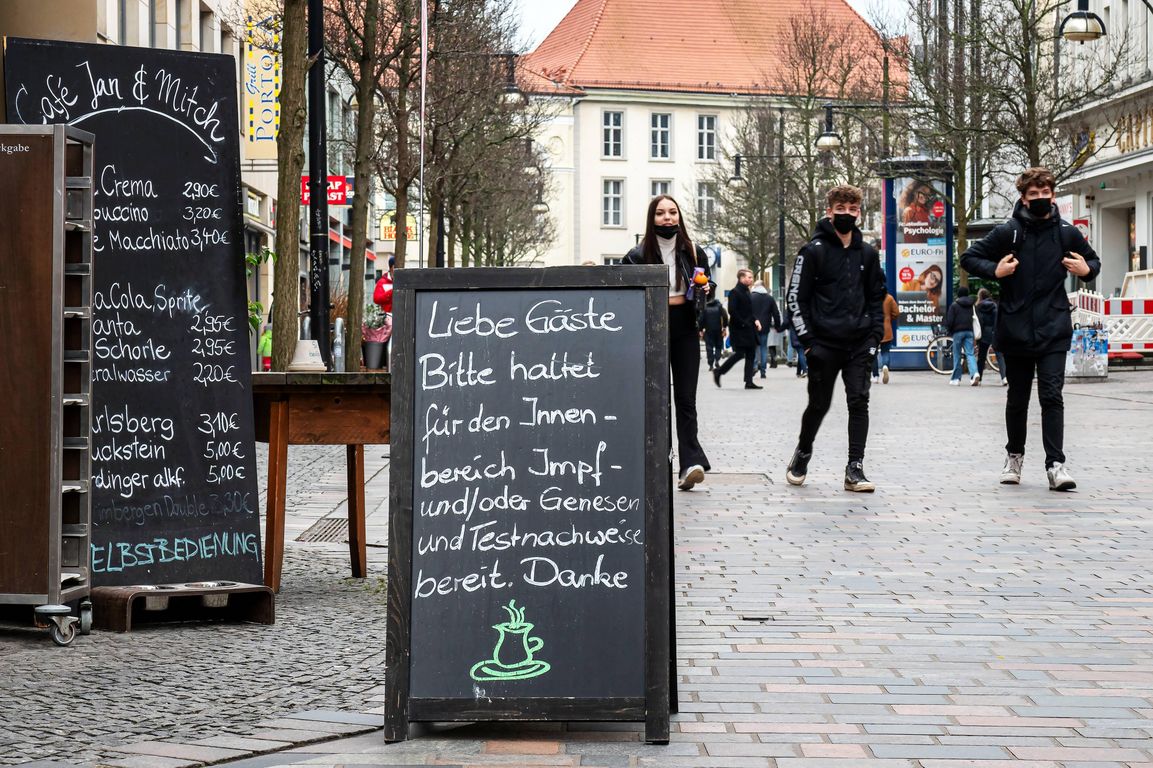 Café Jan & Mitch
Crema 2,90€
3,20€
Macchiato 3,40€
Cola, Sprite,
2,95€
Schorle 2,95€
2,20€
3,10€
5,00€
alkf. 5,00€
Double 3,30€
ELBSTBEDIENUNG
Grill
PORTO
Liebe Gäste
Bitte haltet
für den Innen-
bereich Impf-
und/oder Genesen
und Testnachweise
bereit. Danke
Psychologie
EURO-FH
Bachelor
& Master
EURO